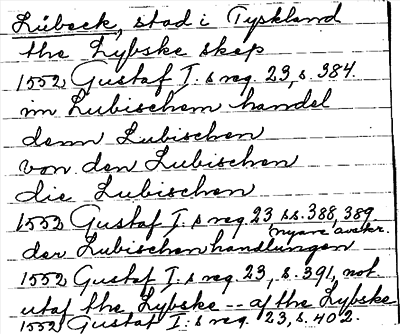 Lübeck, stad i Tyskland
the Lybske skep
1552 Gustaf I. s reg. 23, s. 384.
im Lubischem handel
denn Lubischen
von den Lubischen
die Lubischen
1552 Gustaf I. s reg 23 ss. 388, 389
nyare avskr.
der Lubischenhandlungen
1552 Gustaf I. s reg. 23, s. 391, not.
utaf the Lybske -- af the Lybske
1552 Gustaf I. s reg. 23, s. 402.